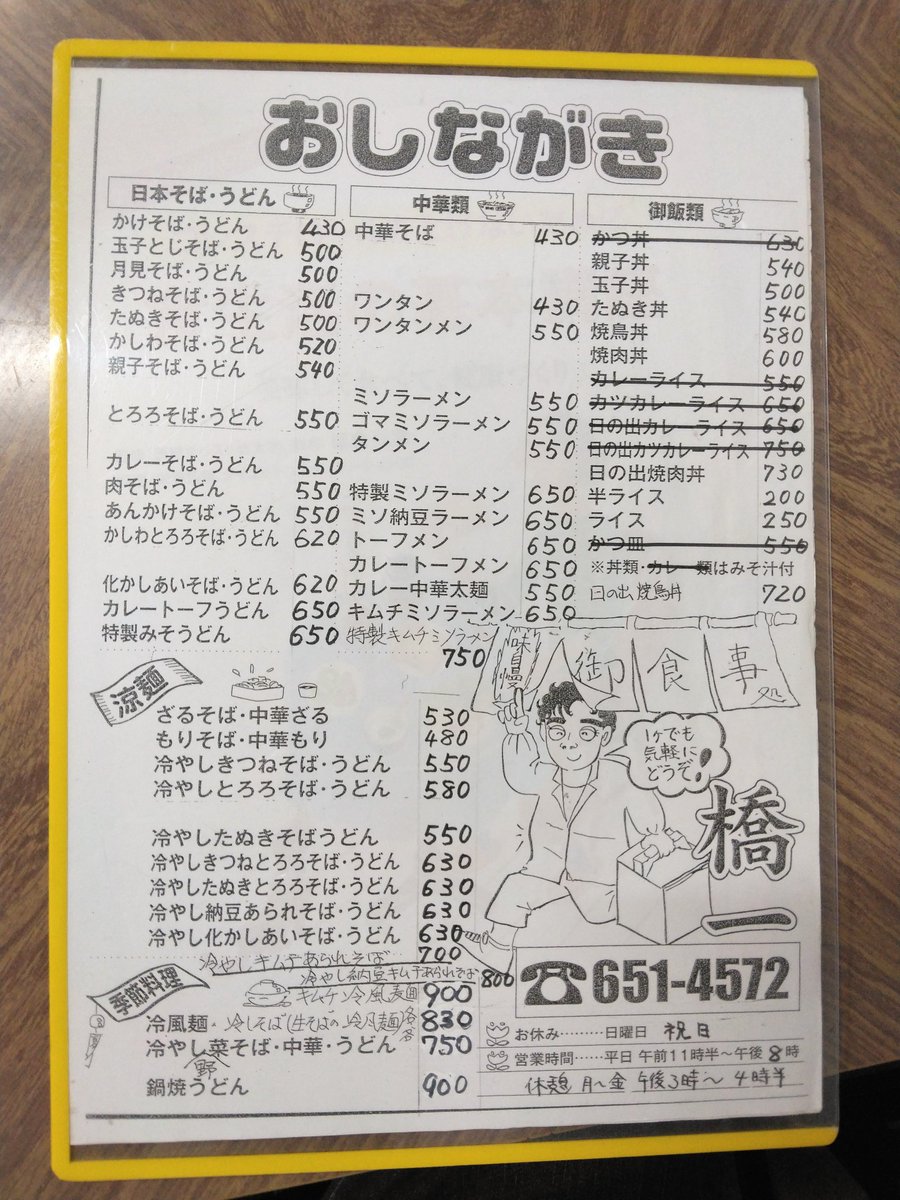 おしながき
日本そば・うどん
かけそば・うどん 430
玉子とじそば・うどん 500
月見そば・うどん 500
きつねそば・うどん 500
たぬきそば・うどん 500
かしわそば・うどん 520
親子そば・うどん 540
とろろそば・うどん 550
カレーそば・うどん 550
肉そば・うどん 550
あんかけそば・うどん 550
かしわとろろそば・うどん 620
化かしあいそば・うどん 620
カレートーフうどん 650
特製みそうどん 650
中華類
中華そば 430
ワンタン 430
ワンタンメン 550
ミソラーメン 550
ゴマミソラーメン 550
タンメン 550
特製ミソラーメン 650
ミソ納豆ラーメン 650
トーフメン 650
カレートーフメン 650
カレー中華太麺 550
キムチミソラーメン 650
特製キムチミソラーメン
750
御飯類
かつ丼 630
親子丼 540
玉子丼 500
たぬき丼 540
焼鳥丼 580
焼肉丼 600
カレーライス 550
カツカレーライス 650
日の出カレーライス 650
日の出カツカレーライス 750
日の出焼肉丼 730
半ライス 200
ライス 250
かつ皿 550
※丼類・カレー類はみそ汁付
日の出焼鳥丼 720
涼麺
ざるそば・中華ざる 530
もりそば・中華もり 480
冷やしきつねそば・うどん 550
冷やしとろろそば・うどん 580
冷やしたぬきそばうどん 550
冷やしきつねとろろそば・うどん 630
冷やしたぬきとろろそば・うどん 630
冷やし納豆あられそば・うどん 630
冷やし化かしあいそば・うどん 630
冷やしキムチあられそば 700
冷やし納豆キムチあられそば 800
季節料理
キムケン冷風麺 900
冷風麺・冷しそば(生そばの冷風麺)各各 830
冷やし野菜そば・中華・うどん 750
鍋焼うどん 900
味自慢
御食事処
1ヶでも
気軽に
どうぞ!
橋一
☎651-4572
お休み………日曜日 祝日
営業時間……平日 午前11時半～午後8時
休憩 月～金 午後3時～4時半